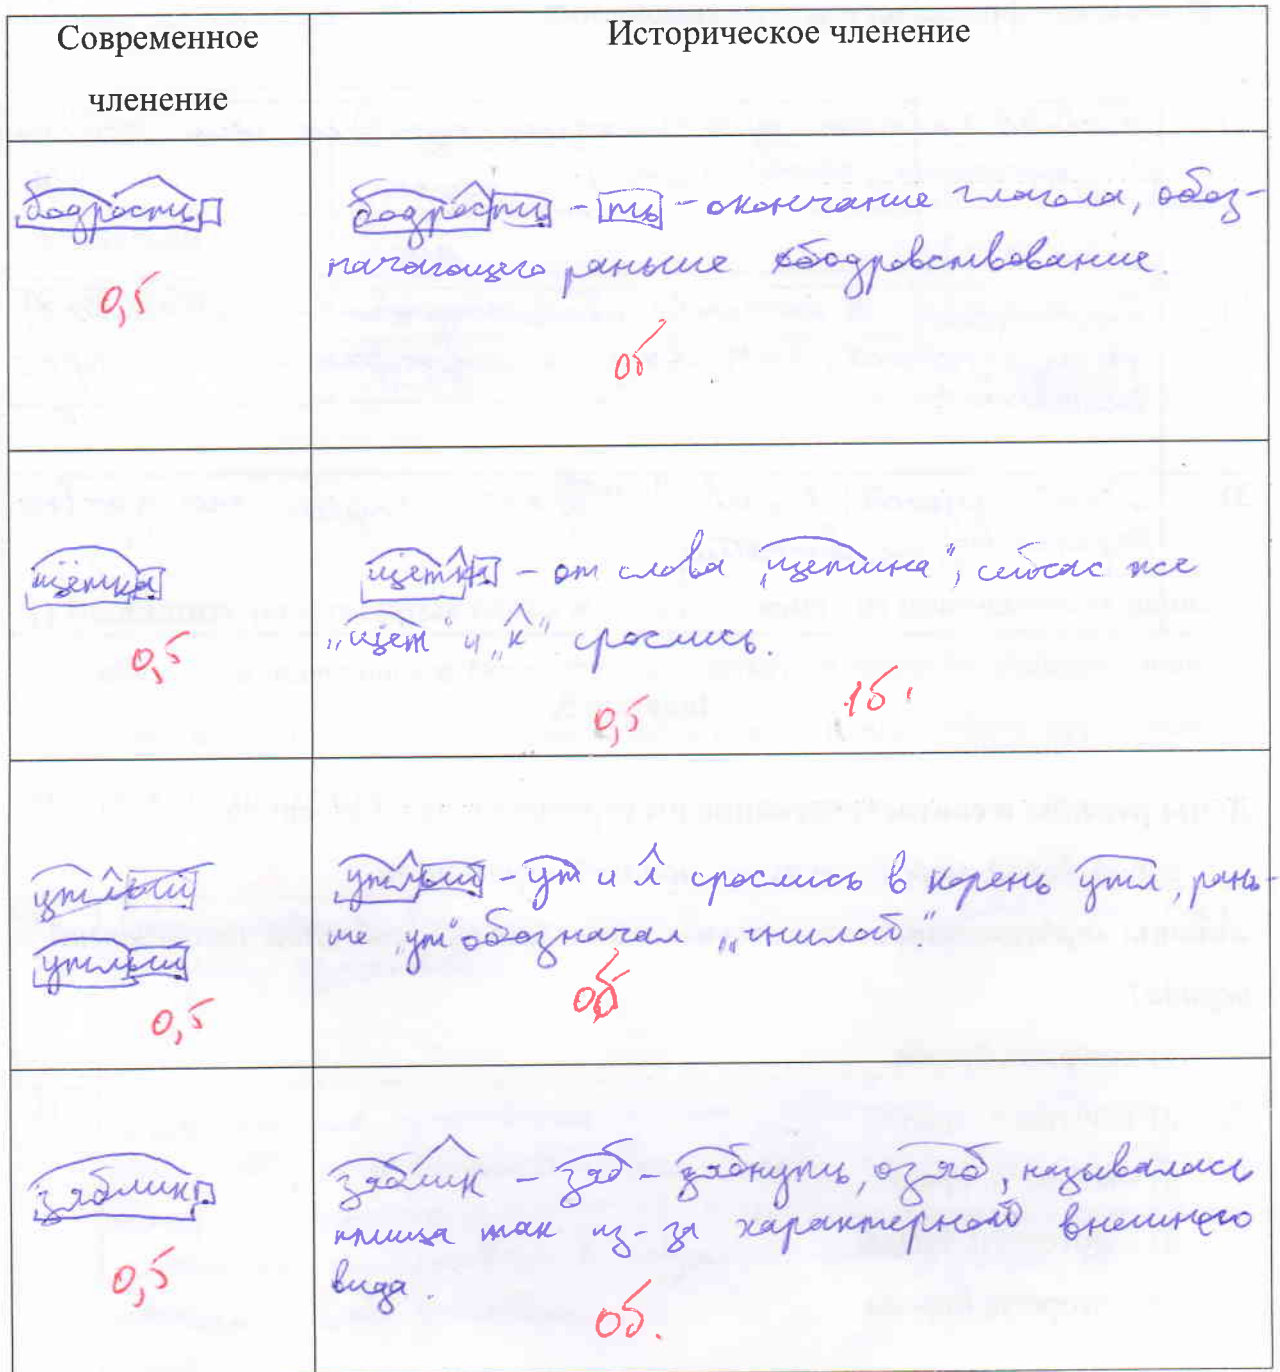 Современное
членение
Историческое членение
бодрость
0,5
бодрость - ть - окончание глагола, обоз-
начающего раньше бодровствование.
0б
щётка
0,5
щетка - от слова „щетина", сейчас же
„щет" и „к" срослись.
0,5
1б.
утлый
утлый
0,5
утлый - ут и л срослись в корень утл, рань-
ше „ут" обозначал „гнилой".
0б
зяблик
0,5
зяблик - зяб - зябнуть, озяб, называлась
птица так из-за характерного внешнего
вида.
0б.